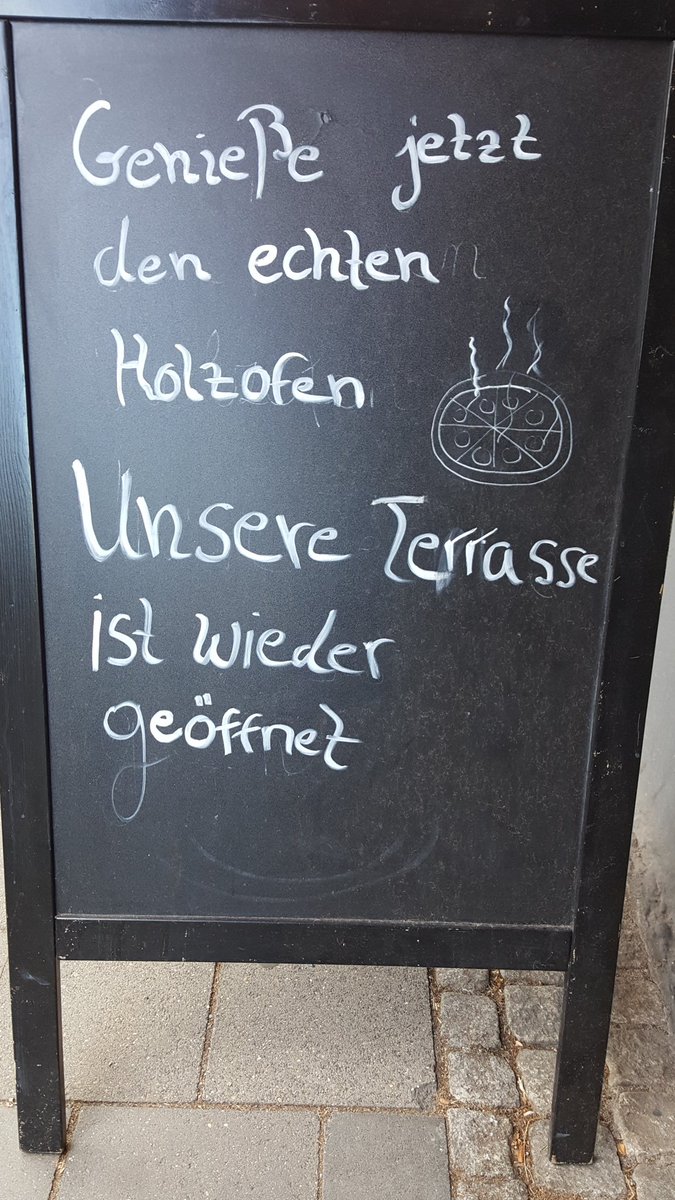 Genieße jetzt
den echten
Holzofen
Unsere Terrasse
ist wieder
geöffnet